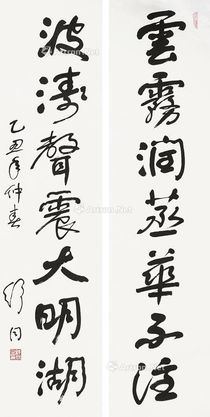 雲霧润蒸華不注
波濤聲震大明湖
乙丑年仲春
舒同